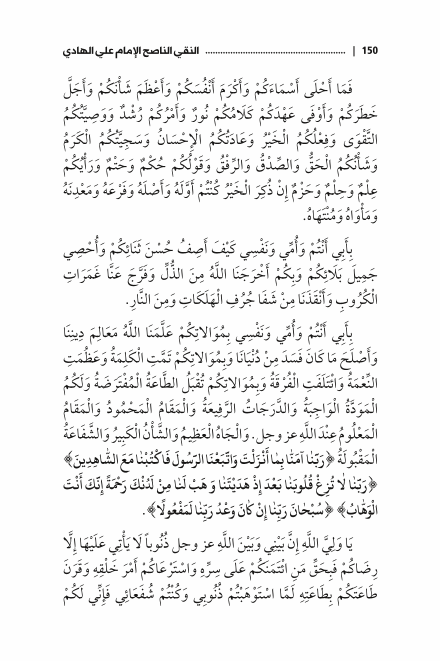 150 | ........................................................ النقي الناصح الإمام علي الهادي
فَمَا أَحْلَى أَسْمَاءَكُمْ وَأَكْرَمَ أَنْفُسَكُمْ وَأَعْظَمَ شَأْنَكُمْ وَأَجَلَّ
خَطَرَكُمْ وَأَوْفَى عَهْدَكُمْ كَلَامُكُمْ نُورٌ وَأَمْرُكُمْ رُشْدٌ وَوَصِيَّتُكُمُ
التَّقْوَى وَفِعْلُكُمُ الْخَيْرُ وَعَادَتُكُمُ الْإِحْسَانُ وَسَجِيَّتُكُمُ الْكَرَمُ
وَشَأْنُكُمُ الْحَقُّ وَالصِّدْقُ وَالرِّفْقُ وَقَوْلُكُمْ حُكْمٌ وَحَتْمٌ وَرَأْيُكُمْ
عِلْمٌ وَحِلْمٌ وَحَزْمٌ إِنْ ذُكِرَ الْخَيْرُ كُنْتُمْ أَوَّلَهُ وَأَصْلَهُ وَفَرْعَهُ وَمَعْدِنَهُ
وَمَأْوَاهُ وَمُنْتَهَاهُ.
بِأَبِي أَنْتُمْ وَأُمِّي وَنَفْسِي كَيْفَ أَصِفُ حُسْنَ ثَنَائِكُمْ وَأُحْصِي
جَمِيلَ بَلَائِكُمْ وَبِكُمْ أَخْرَجَنَا اللَّهُ مِنَ الذُّلِّ وَفَرَّجَ عَنَّا غَمَرَاتِ
الْكُرُوبِ وَأَنْقَذَنَا مِنْ شَفَا جُرُفِ الْهَلَكَاتِ وَمِنَ النَّارِ.
بِأَبِي أَنْتُمْ وَأُمِّي وَنَفْسِي بِمُوَالاتِكُمْ عَلَّمَنَا اللَّهُ مَعَالِمَ دِينِنَا
وَأَصْلَحَ مَا كَانَ فَسَدَ مِنْ دُنْيَانَا وَبِمُوَالاتِكُمْ تَمَّتِ الْكَلِمَةُ وَعَظُمَتِ
النِّعْمَةُ وَائْتَلَفَتِ الْفُرْقَةُ وَبِمُوَالاتِكُمْ تُقْبَلُ الطَّاعَةُ الْمُفْتَرَضَةُ وَلَكُمُ
الْمَوَدَّةُ الْوَاجِبَةُ وَالدَّرَجَاتُ الرَّفِيعَةُ وَالْمَقَامُ الْمَحْمُودُ وَالْمَقَامُ
الْمَعْلُومُ عِنْدَ اللَّهِ عز وجل. وَالْجَاهُ الْعَظِيمُ وَالشَّأْنُ الْكَبِيرُ وَالشَّفَاعَةُ
الْمَقْبُولَةُ ﴿رَبَّنَا آمَنَّا بِمَا أَنْزَلْتَ وَاتَّبَعْنَا الرَّسُولَ فَاكْتُبْنَا مَعَ الشَّاهِدِينَ﴾
﴿رَبَّنَا لَا تُزِغْ قُلُوبَنَا بَعْدَ إِذْ هَدَيْتَنَا وَهَبْ لَنَا مِنْ لَدُنْكَ رَحْمَةً إِنَّكَ أَنْتَ
الْوَهَّابُ﴾ ﴿سُبْحَانَ رَبِّنَا إِنْ كَانَ وَعْدُ رَبِّنَا لَمَفْعُولًا﴾.
يَا وَلِيَّ اللَّهِ إِنَّ بَيْنِي وَبَيْنَ اللَّهِ عز وجل ذُنُوباً لَا يَأْتِي عَلَيْهَا إِلَّا
رِضَاكُمْ فَبِحَقِّ مَنِ ائْتَمَنَكُمْ عَلَى سِرِّهِ وَاسْتَرْعَاكُمْ أَمْرَ خَلْقِهِ وَقَرَنَ
طَاعَتَكُمْ بِطَاعَتِهِ لَمَّا اسْتَوْهَبْتُمْ ذُنُوبِي وَكُنْتُمْ شُفَعَائِي فَإِنِّي لَكُمْ